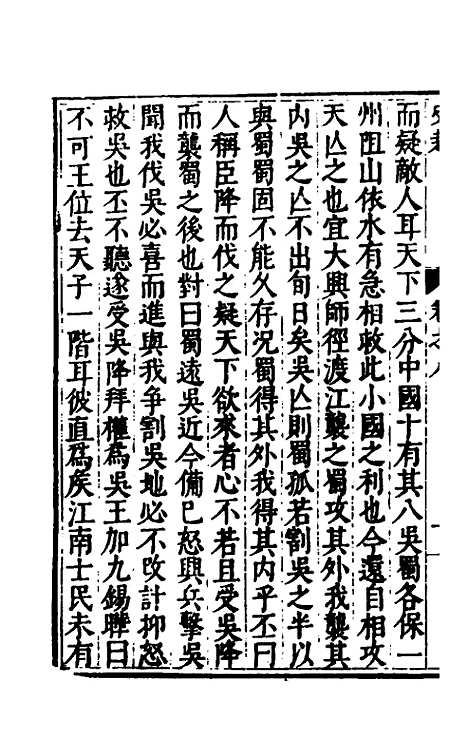 而疑敵人耳天下三分中國十有其八吳蜀各保一
州阻山依水有急相救此小國之利也今還自相攻
天亾之也宜大興師徑渡江襲之蜀攻其外我襲其
内吳之亾不出旬日矣吳亾則蜀孤若割吳之半以
與蜀蜀固不能久存况蜀得其外我得其内乎丕曰
人稱臣降而伐之疑天下欲來者心不若且受吳降
而襲蜀之後也對曰蜀遠吳近今備巳怒興兵擊吳
聞我伐吳必喜而進與我争割吳地必不改計抑怒
救吳也丕不聽遂受吳降拜權爲吳王加九錫曄曰
不可王位去天子一階耳彼直爲矦江南士民未有